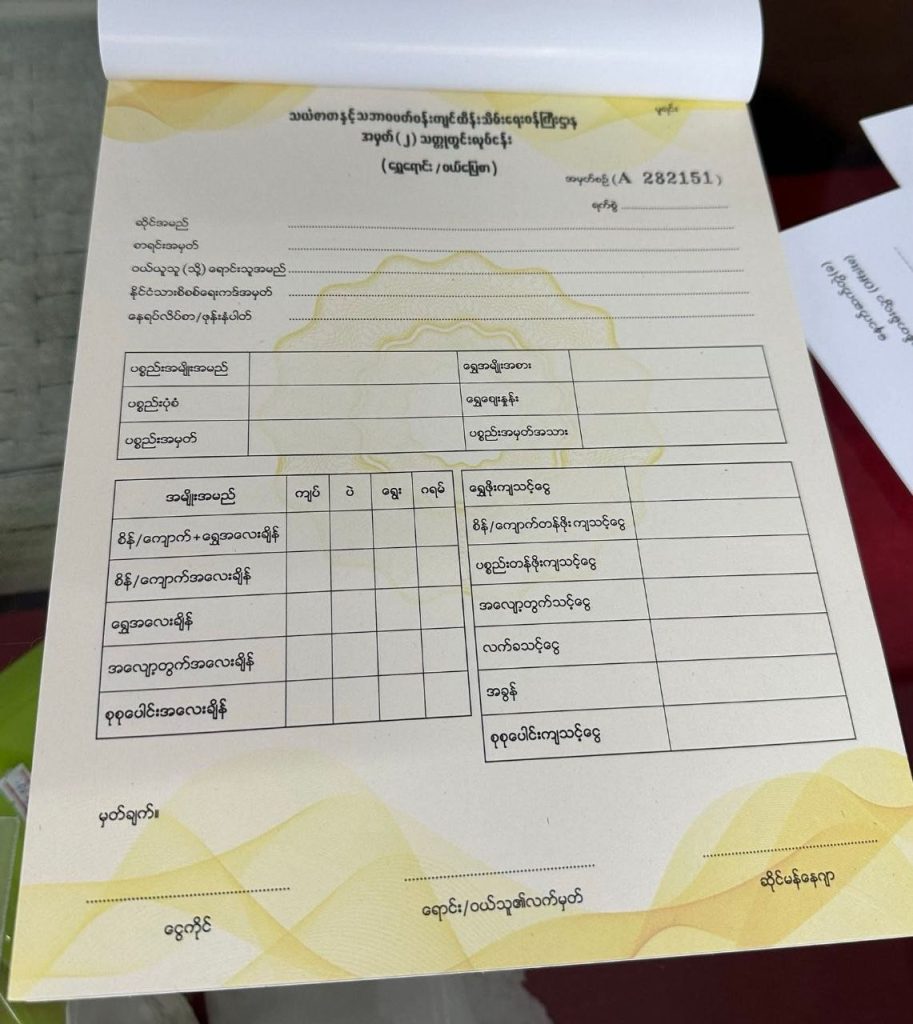 မူရင်း
သယံဇာတနှင့်သဘာဝပတ်ဝန်းကျင်ထိန်းသိမ်းရေးဝန်ကြီးဌာန
အမှတ်(၂)သတ္တုတွင်းလုပ်ငန်း
(ရွှေရောင်း/ဝယ်ပြေစာ)
အမှတ်စဉ်(A 282151)
ရက်စွဲ
ဆိုင်အမည်
စာရင်းအမှတ်
ဝယ်ယူသူ(သို့)ရောင်းသူအမည်
နိုင်ငံသားစိစစ်ရေးကဒ်အမှတ်
နေရပ်လိပ်စာ/ဖုန်းနံပါတ်
ပစ္စည်းအမျိုးအမည် ရွှေအမျိုးအစား
ပစ္စည်းပုံစံ ရွှေဈေးနှုန်း
ပစ္စည်းအမှတ် ပစ္စည်းအမှတ်အသား
အမျိုးအမည် ကျပ် ပဲ ရွေး ဂရမ် ရွှေဖိုးကျသင့်ငွေ
စိန်/ကျောက်+ရွှေအလေးချိန် စိန်/ကျောက်တန်ဖိုးကျသင့်ငွေ
စိန်/ကျောက်အလေးချိန် ပစ္စည်းတန်ဖိုးကျသင့်ငွေ
ရွှေအလေးချိန် အလျော့တွက်သင့်ငွေ
အလျော့တွက်အလေးချိန် လက်ခသင့်ငွေ
စုစုပေါင်းအလေးချိန် အခွန်
စုစုပေါင်းကျသင့်ငွေ
မှတ်ချက်။
ငွေကိုင် ရောင်း/ဝယ်သူ၏လက်မှတ် ဆိုင်မန်နေဂျာ